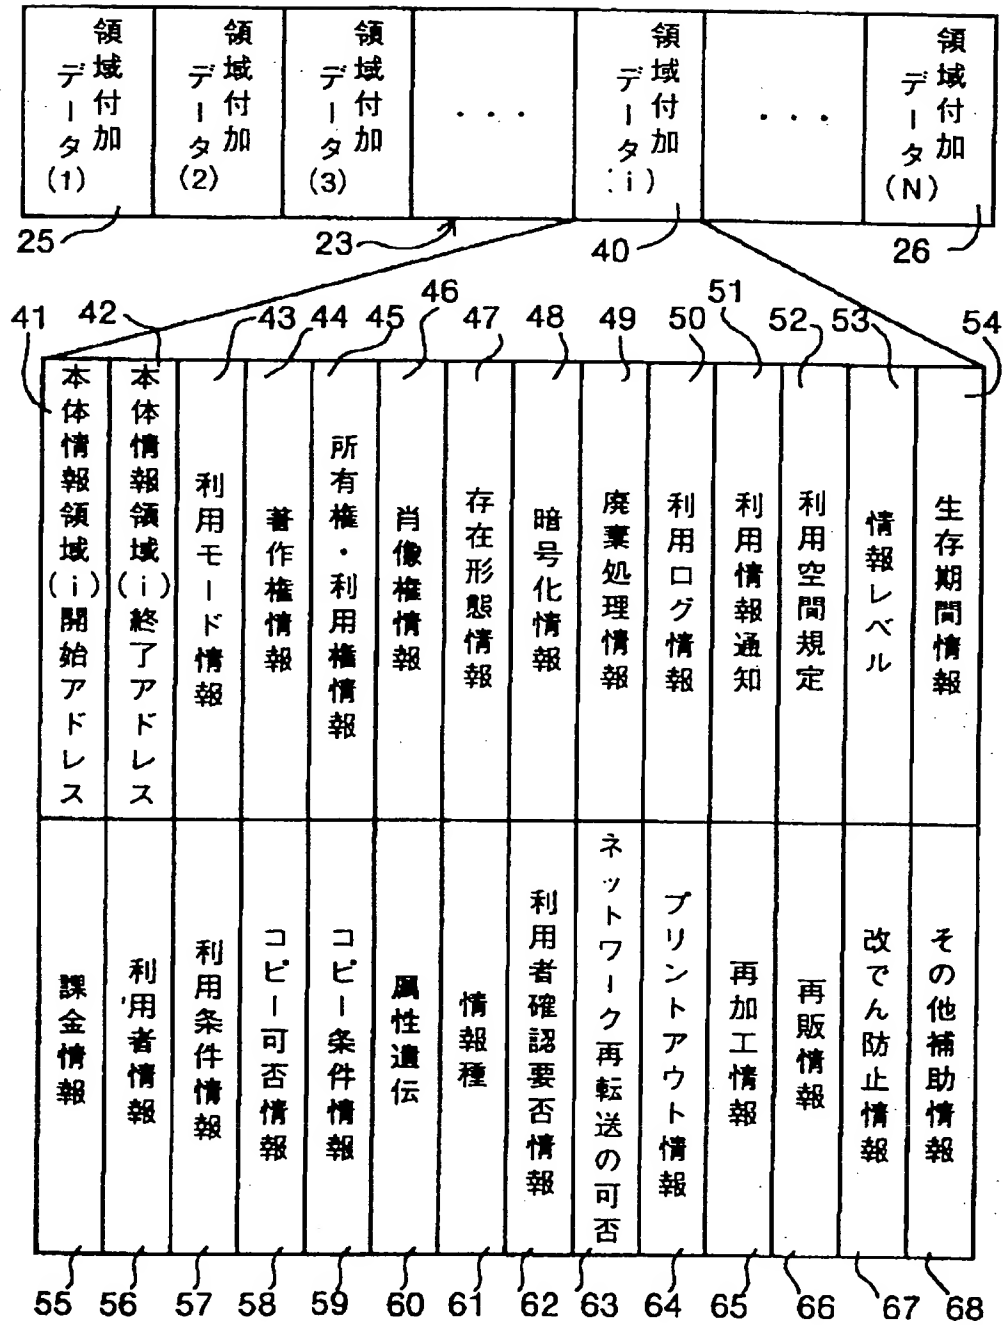 領域付加
データ
(1)
領域付加
データ
(2)
領域付加
データ
(3)
...
領域付加
データ
(i)
...
領域付加
データ
(N)
25
23
40
26
41
42
43
44
45
46
47
48
49
50
51
52
53
54
本体情報領域(i)開始アドレス
本体情報領域(i)終了アドレス
利用モード情報
著作権情報
所有権・利用権情報
肖像権情報
存在形態情報
暗号化情報
廃棄処理情報
利用ログ情報
利用情報通知
利用空間規定
情報レベル
生存期間情報
課金情報
利用者情報
利用条件情報
コピー可否情報
コピー条件情報
属性遺伝
情報種
利用者確認要否情報
ネットワーク再転送の可否
プリントアウト情報
再加工情報
再販情報
改でん防止情報
その他補助情報
55
56
57
58
59
60
61
62
63
64
65
66
67
68